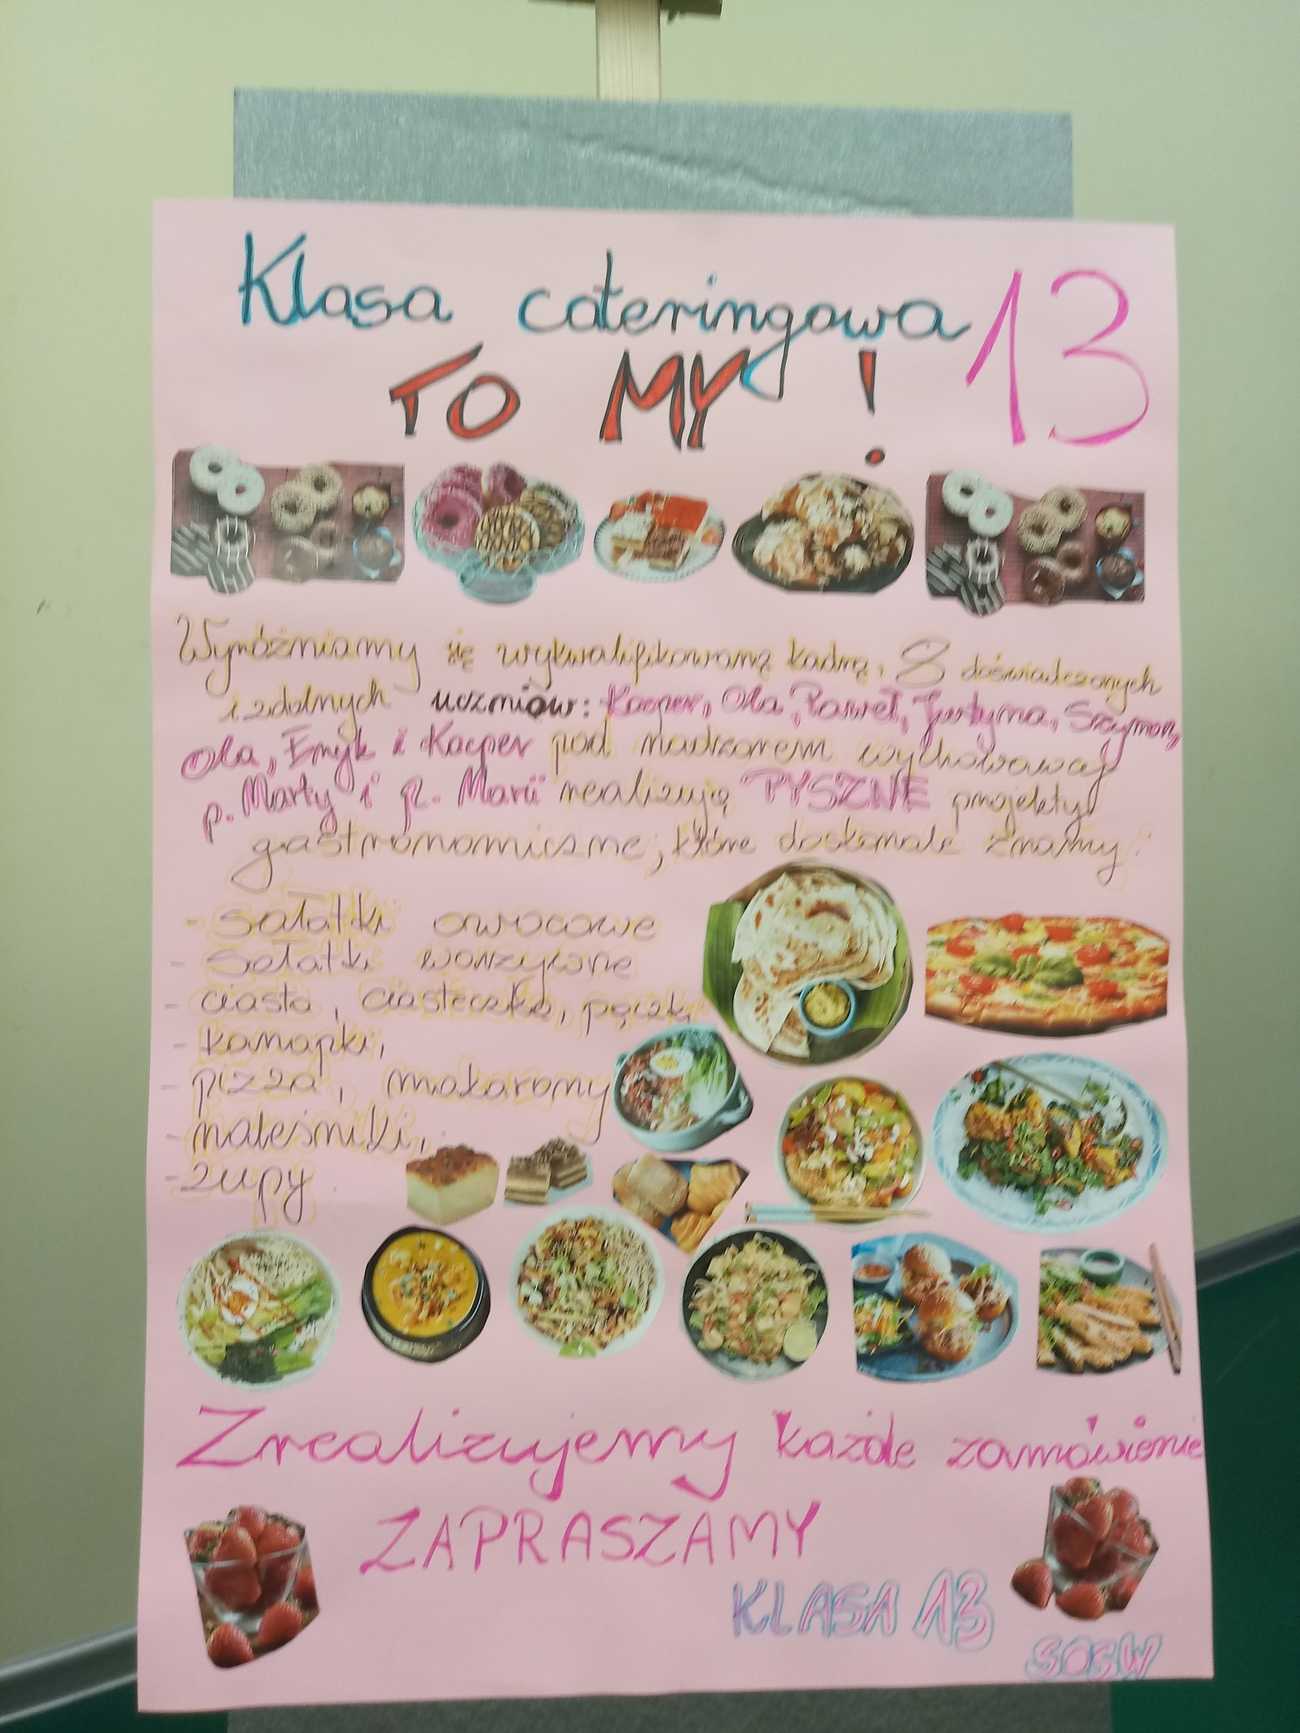 Klasa cateringowa 13
TO MY !
Wyróżniamy się wykwalifikowaną kadrą, 8 doświadczonych
i zdolnych uczniów: Kacper, Ola, Paweł, Justyna, Szymon,
Ola, Emyk i Kacper pod nadzorem wychowawcy
p. Marty i p. Marii realizują PYSZNE projekty
gastronomiczne, które doskonale znamy:
- sałatki owocowe
- sałatki warzywne
- ciasta, ciasteczka, pączki
- kanapki,
- pizza, makarony
- naleśniki,
- zupy
Zrealizujemy każde zamówienie
ZAPRASZAMY
KLASA 13
SOSW